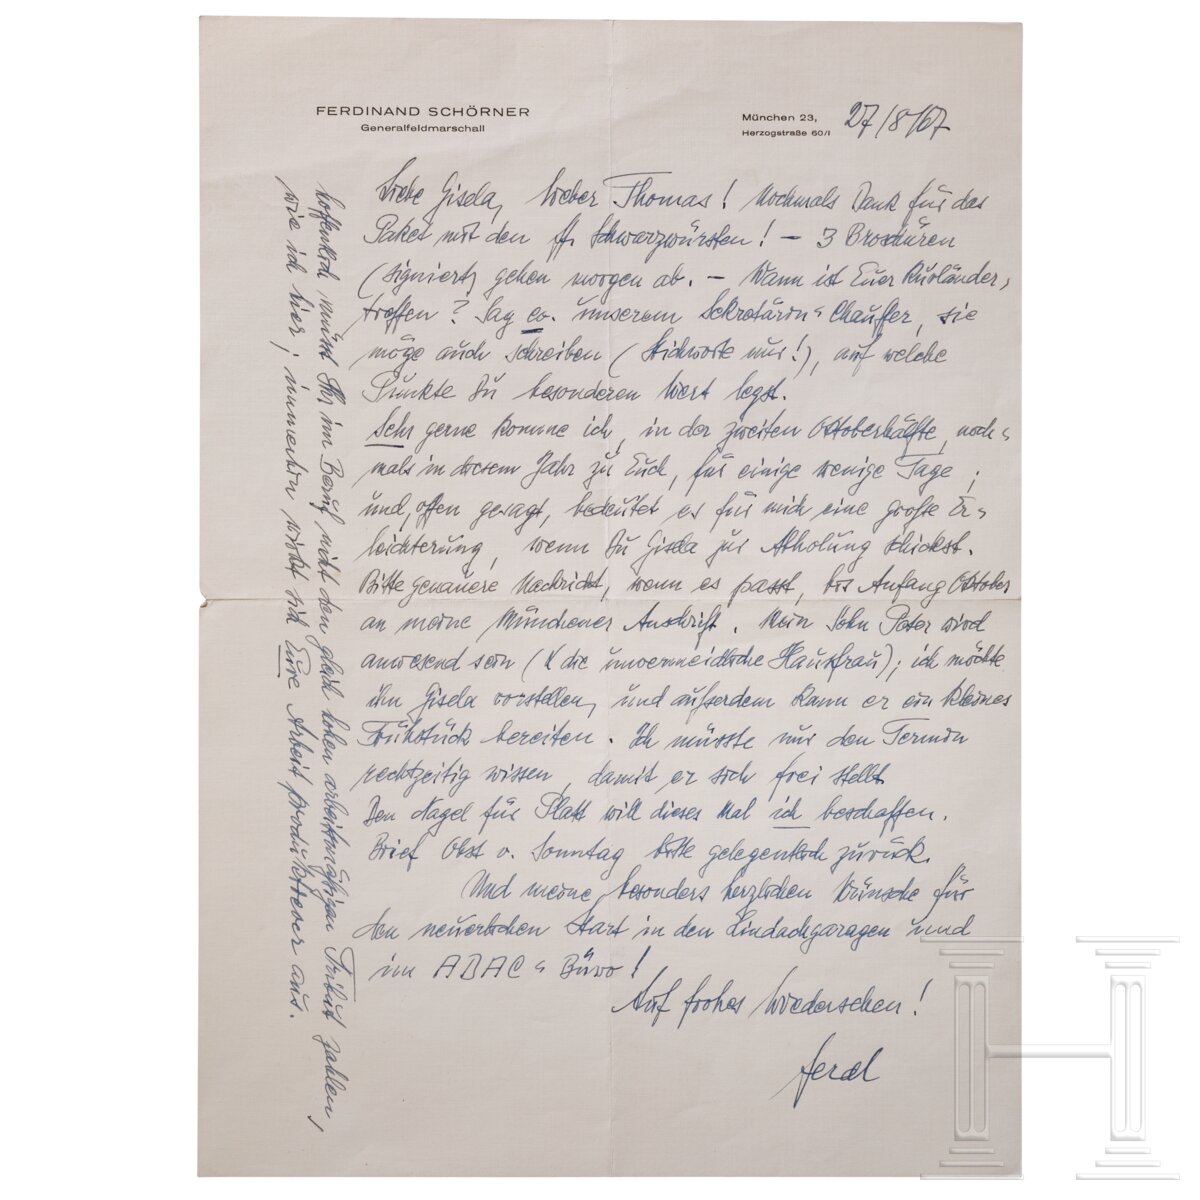 FERDINAND SCHÖRNER
Generalfeldmarschall
München 23,
Herzogstraße 60/I
27/8/67
Liebe Gisela, lieber Thomas! Nochmals Dank für das
Paket mit den ff. Schwarzwürsten! – 3 Broschüren
(signiert) gehen morgen ab. – Wann ist Euer Rußländer-
treffen? Sag ev. unserem Sekretärin-Chauffer, sie
möge auch schreiben (Stichworte nur!), auf welche
Punkte Du besonderen Wert legst.
Sehr gerne komme ich, in der zweiten Oktoberhälfte, noch-
mals in diesem Jahr zu Euch, für einige wenige Tage;
und, offen gesagt, bedeutet es für mich eine große Er-
leichterung, wenn Du Gisela zur Abholung schickst.
Bitte genauere Nachricht, wenn es passt, bis Anfang Oktober
an meine Münchener Anschrift. Mein Sohn Peter wird
anwesend sein (u. die unvermeidliche Hausfrau); ich möchte
ihn Gisela vorstellen, und außerdem kann er ein kleines
Frühstück bereiten. Ich müsste nur den Termin
rechtzeitig wissen, damit er sich frei stellt.
Den Nagel für Platt will dieses Mal ich beschaffen.
Brief Obst v. Sonntag bitte gelegentlich zurück.
Und meine besonders herzlichen Wünsche für
den neuerlichen Start in den Lindachgaragen und
im ABAC-Büro!
Auf frohes Wiedersehen!
Ferdl
hoffentlich müsst Ihr im Beruf nicht den gleich hohen arbeitsmäßigen Tribut zahlen,
wie ich hier; immerhin wirkt sich Eure Arbeit produktiver aus.